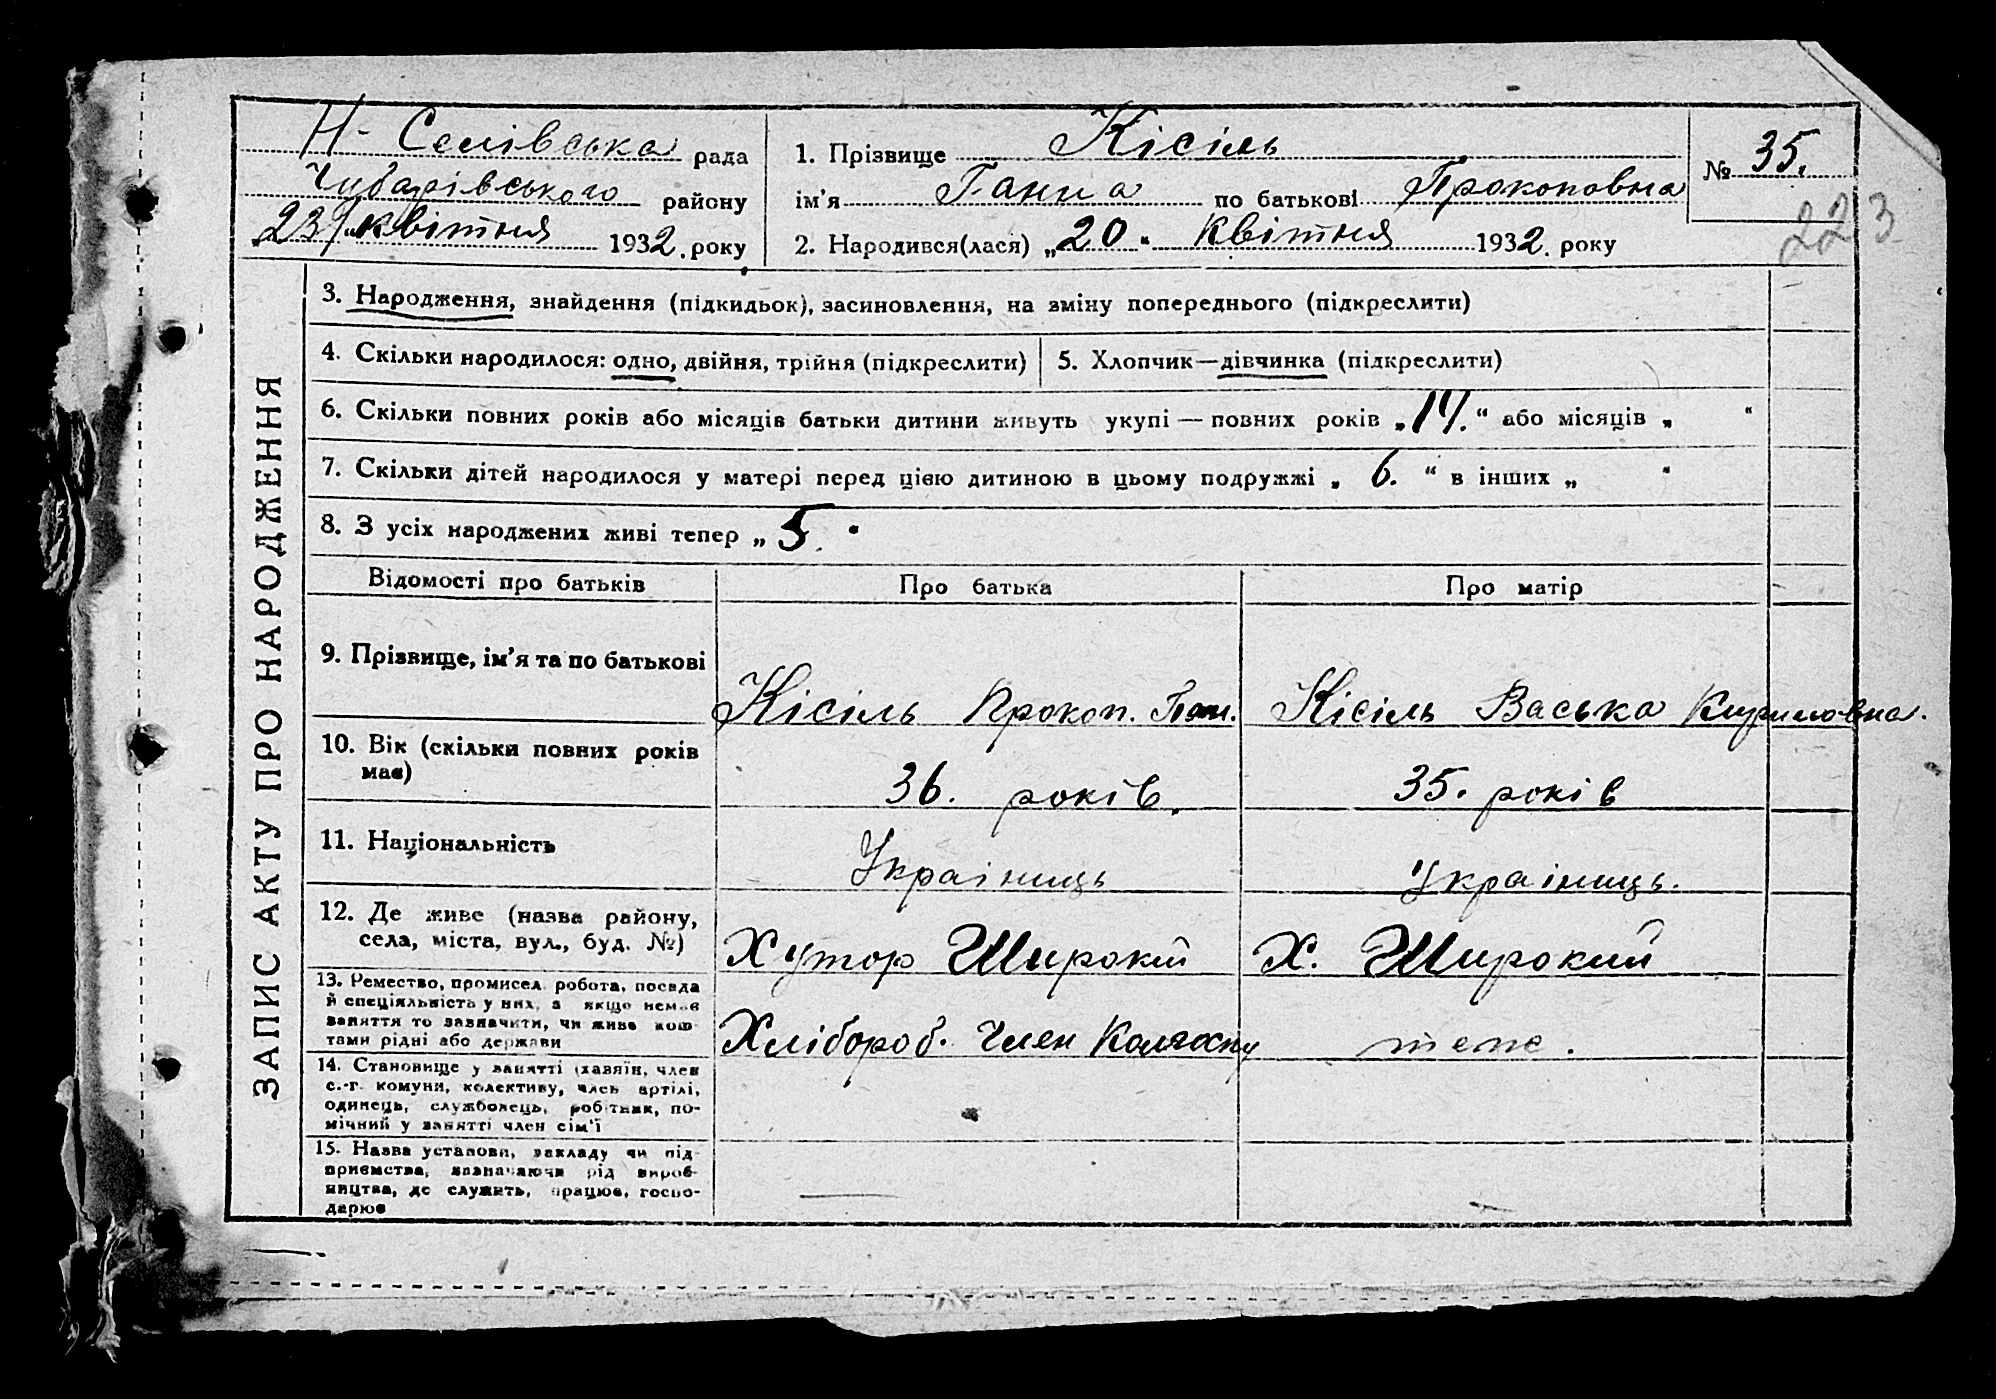 ЗАПИС АКТУ ПРО НАРОДЖЕННЯ
Н- Селівська рада
Чубарівського району
23/квітня 1932. року
1. Прізвище Кісіль
ім'я Ганна по батькові Прокоповна
2. Народився(лася) „20“ Квітня 1932. року
№ 35.
223
3. Народження, знайдення (підкидьок), засиновлення, на зміну попереднього (підкреслити)
4. Скільки народилося: одно, двійня, трійня (підкреслити)
5. Хлопчик—дівчинка (підкреслити)
6. Скільки повних років або місяців батьки дитини живуть укупі — повних років „14.“ або місяців „ “
7. Скільки дітей народилося у матері перед цією дитиною в цьому подружжі „ 6. “ в інших „ “
8. З усіх народжених живі тепер „ 5. “
Відомості про батьків
Про батька
Про матір
9. Прізвище, ім'я та по батькові
Кісіль Прокоп.
Кісіль Васька Кириловна.
10. Вік (скільки повних років
має)
36. років.
35. років
11. Національність
Україниць
Україниць.
12. Де живе (назва району,
села, міста, вул., буд. №)
Хутор Широкий
Х. Широкий
13. Ремество, промисел, робота, посада
й спеціяльність у них, а якщо немає
заняття то зазначити, чи живе кош-
тами рідні або держави
Хлібороб. Член Колгоспу
теж.
14. Становище у занятті (хазяїн, член
с.-г. комуни, колективу, член артілі,
одинець, службовець, робітник, по-
мічний у занятті член сім'ї
15. Назва установи, закладу чи під-
приємства, зазначаючи рід вироб-
ництва, де служить, працює, госпо-
дарює